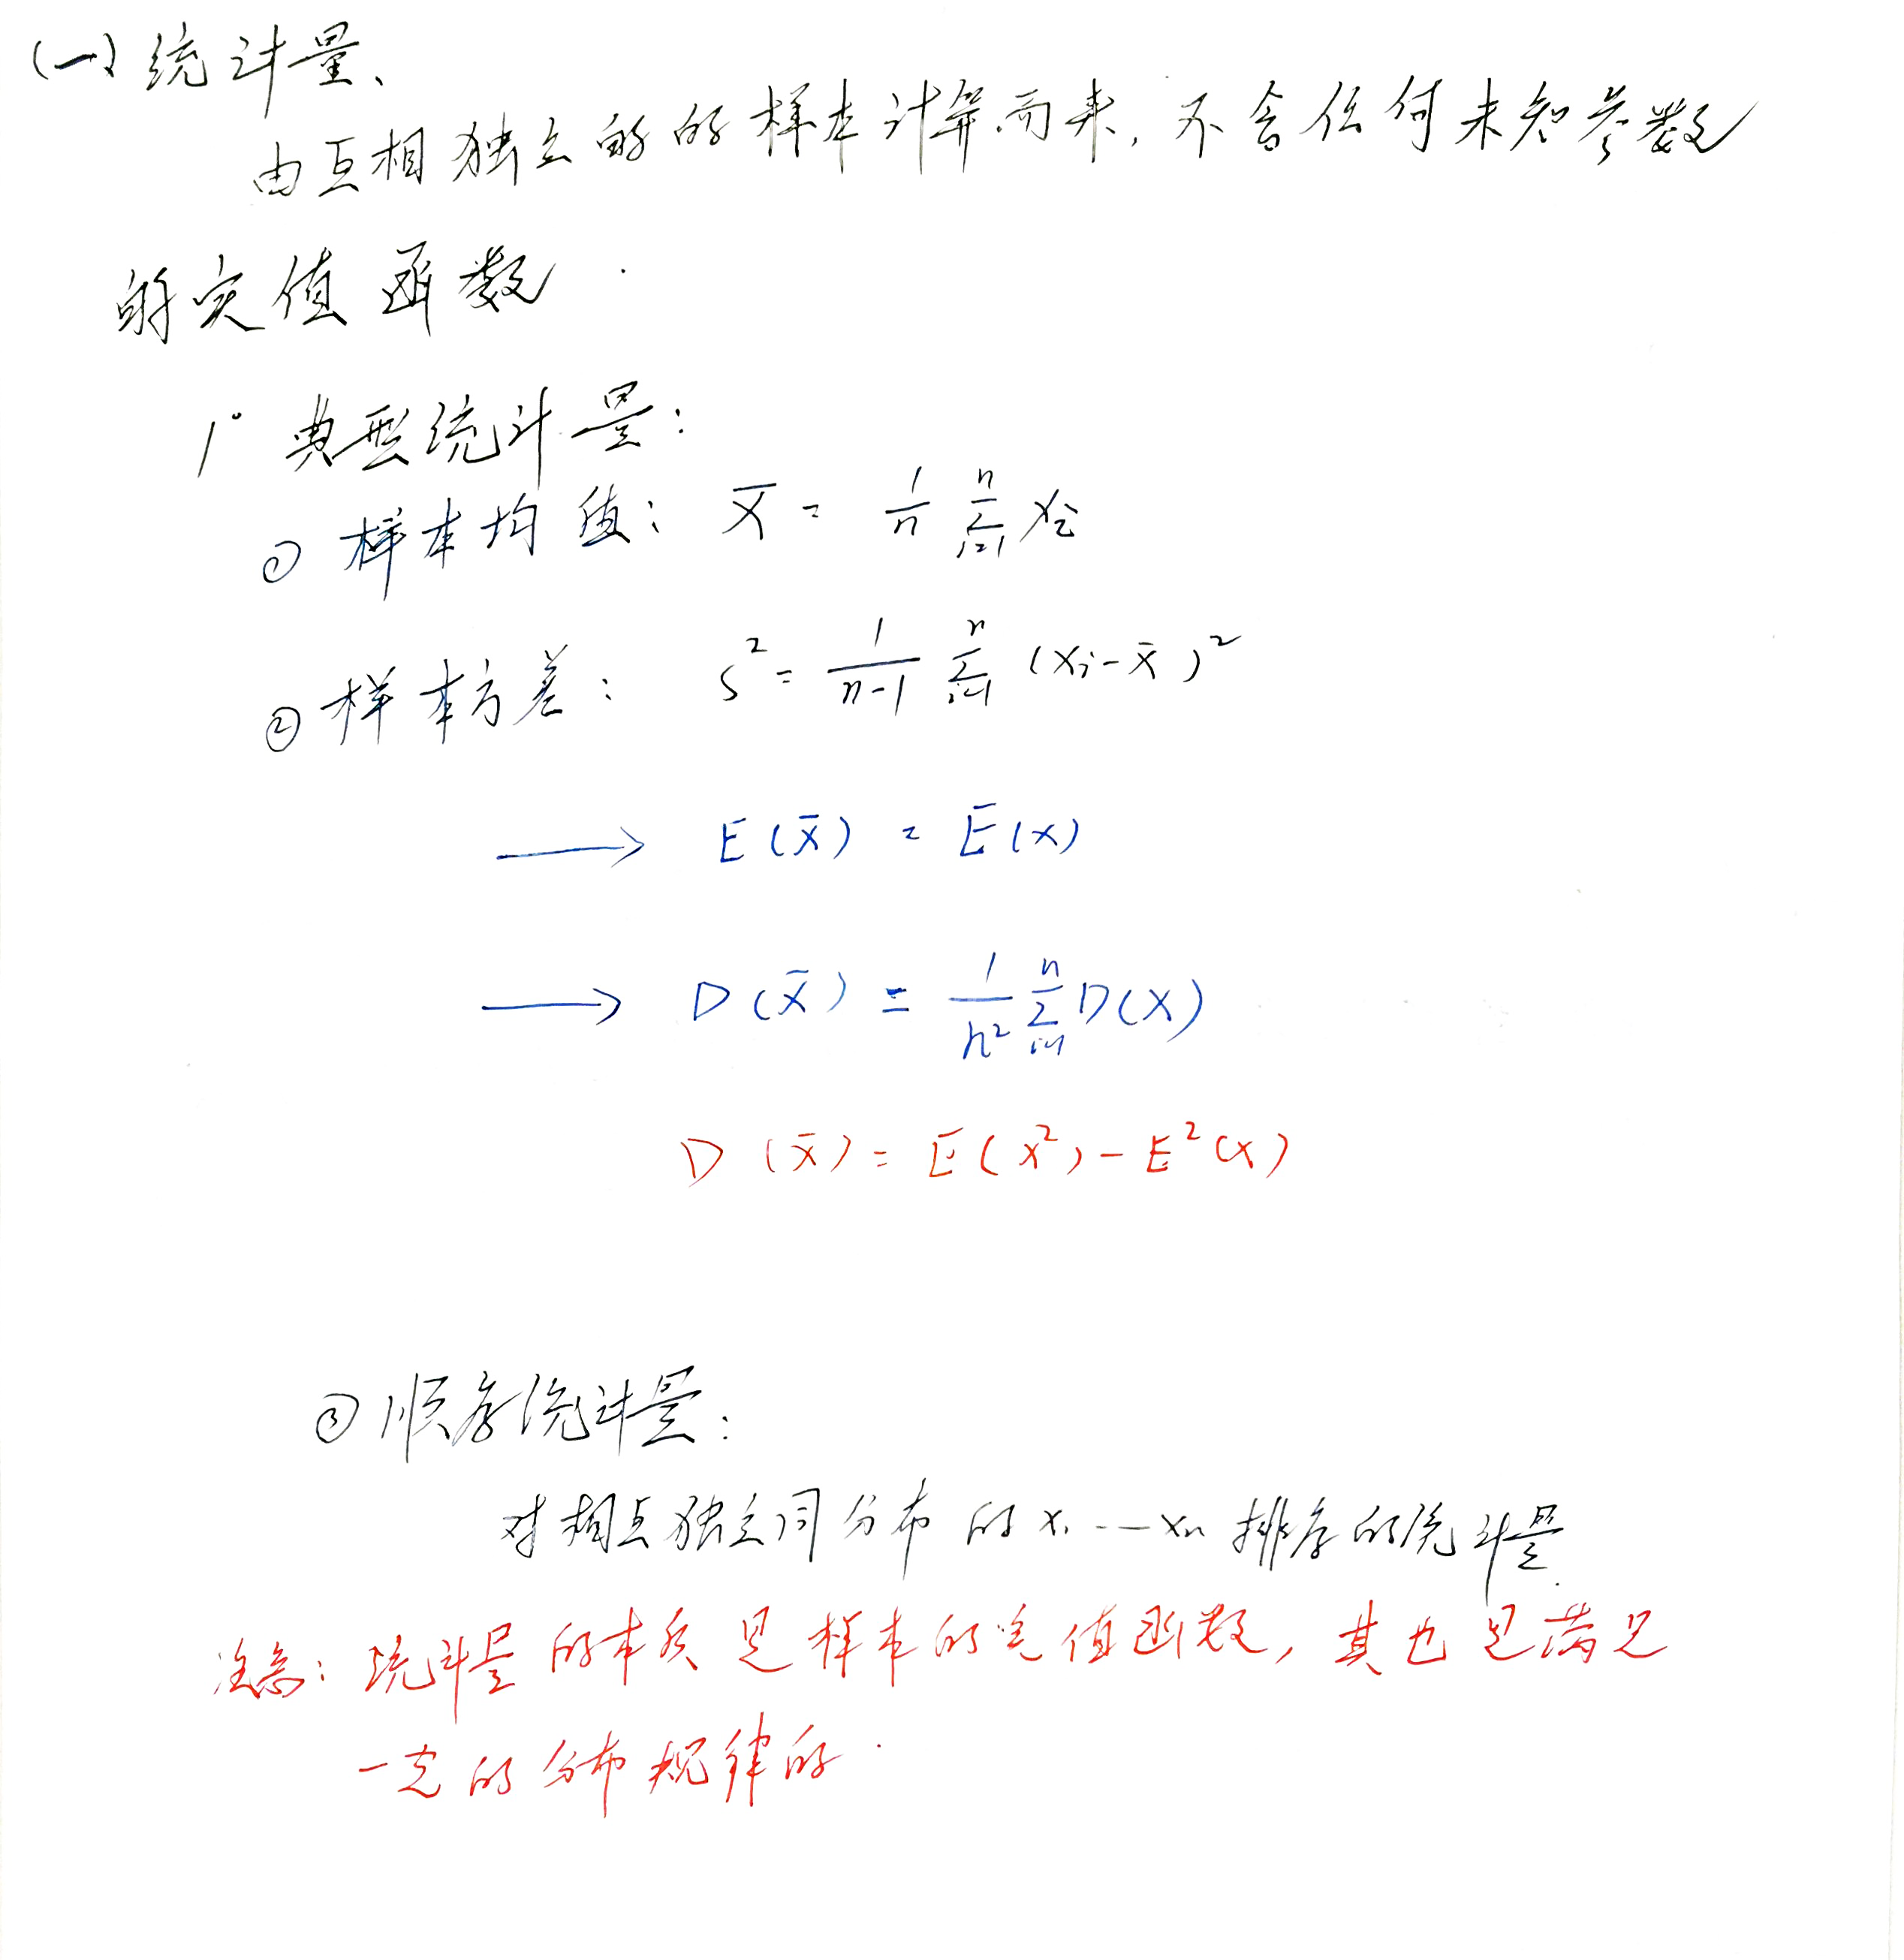 (一) 统计量、
由互相独立的的样本计算而来, 不含任何未知参数
的定值函数.
1° 典型统计量:
① 样本均值: X̄ = 1/n ∑_{i=1}^{n} xi
② 样本方差: S² = 1/(n-1) ∑_{i=1}^{n} (xi-x̄)²
→ E(x̄) = E(x)
→ D(x̄) = 1/n² ∑_{i=1}^{n} D(X)
D(x̄) = E(x²) - E²(x)
③ 顺序统计量:
对相互独立同分布的x₁---xn排序的统计量.
注意: 统计量的本质是样本的定值函数, 其也是满足
一定的分布规律的.